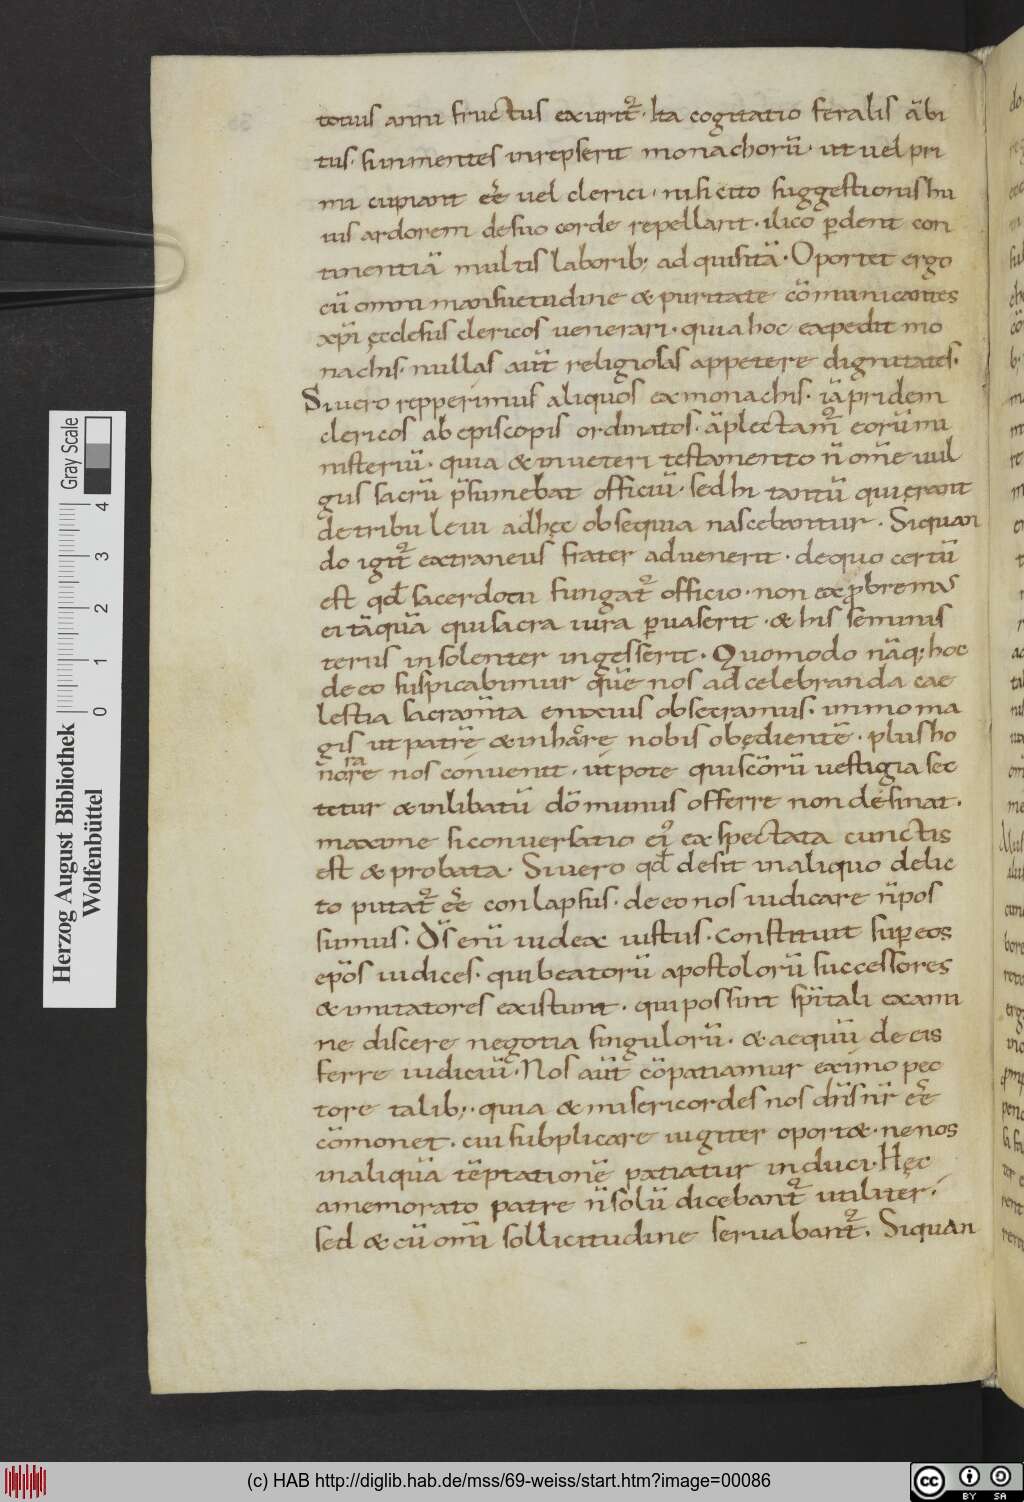 totius anni fructus exurit᷑· Ita cogitatio feralis ābi
tus· si in mentes inrepserit monachorū· ut vel pri
mi cupiant eē vel clerici· nisi cito suggestionis hu
ius ardorem de suo corde repellant· ilico ꝑdent con
tinentiā multis laborib; ad quisitā· Oportet ergo
cū omni mansuetudine & puritate cōmunicantes
xp̄i ęcclesiis clericos venerari· quia hoc expedit mo
nachis· nullas aut̄ religiosas appetere dignitates·
Si vero repperimus aliquos ex monachis· iā pridem
clericos ab episcopis ordinatos· āplectam̄ eorū mi
nisteriū· quia & in veteri testamento n̄ om̄e vul
gus sacrū p̄sumebat officiū· sed hi tantū qui erant
de tribu levi ad hęc obsequia nascebantur· Si quan
do igit᷑ extraneus frater advenerit· de quo certū
est qd̄ sacerdotii fungat᷑ officio· non exꝓbremus
ei tāquā qui sacra iura ꝑvaserit· & his se minis
teriis insolenter ingesserit· Quomodo nāq; hoc
de eo suspicabimur quē nos ad celebranda cae
lestia sacram̄ta enixius obsecramus· immo ma
gis ut patrē & inhārere nobis obedientē· plus ho
norare nos convenit· ut pote qui scōrū vestigia sec
tetur & inlibatū dō munus offerre non desinat·
maxime si conversatio ei᷒ exspectata cunctis
est & probata· Si vero qd̄ desit in aliquo delic
to putat᷑ eē conlapsus· de eo nos iudicare n̄ pos
sumus· Ds̄ enī iudex iustus· constituit suꝑ eos
ep̄os iudices· qui beatorū apostolorū successores
& imitatores existunt· qui possint sp̄itali exami
ne discere negotia singulorū· & aequū de eis
ferre iudiciū· Nos aut̄ cōpatiamur ex imo pec
tore talib;· quia & misericordes nos dn̄s nr̄ eē
cōmonet· cui subplicare iugiter oport&· ne nos
in aliquā tēptationē patiatur induci· Hęc
a memorato patre n̄ solū dicebant᷑ utiliter·
sed & cū om̄i sollicitudine servabant᷑· Si quan
Herzog August Bibliothek
Wolfenbüttel
Gray Scale
0 1 2 3 4
(c) HAB http://diglib.hab.de/mss/69-weiss/start.htm?image=00086
cc BY SA